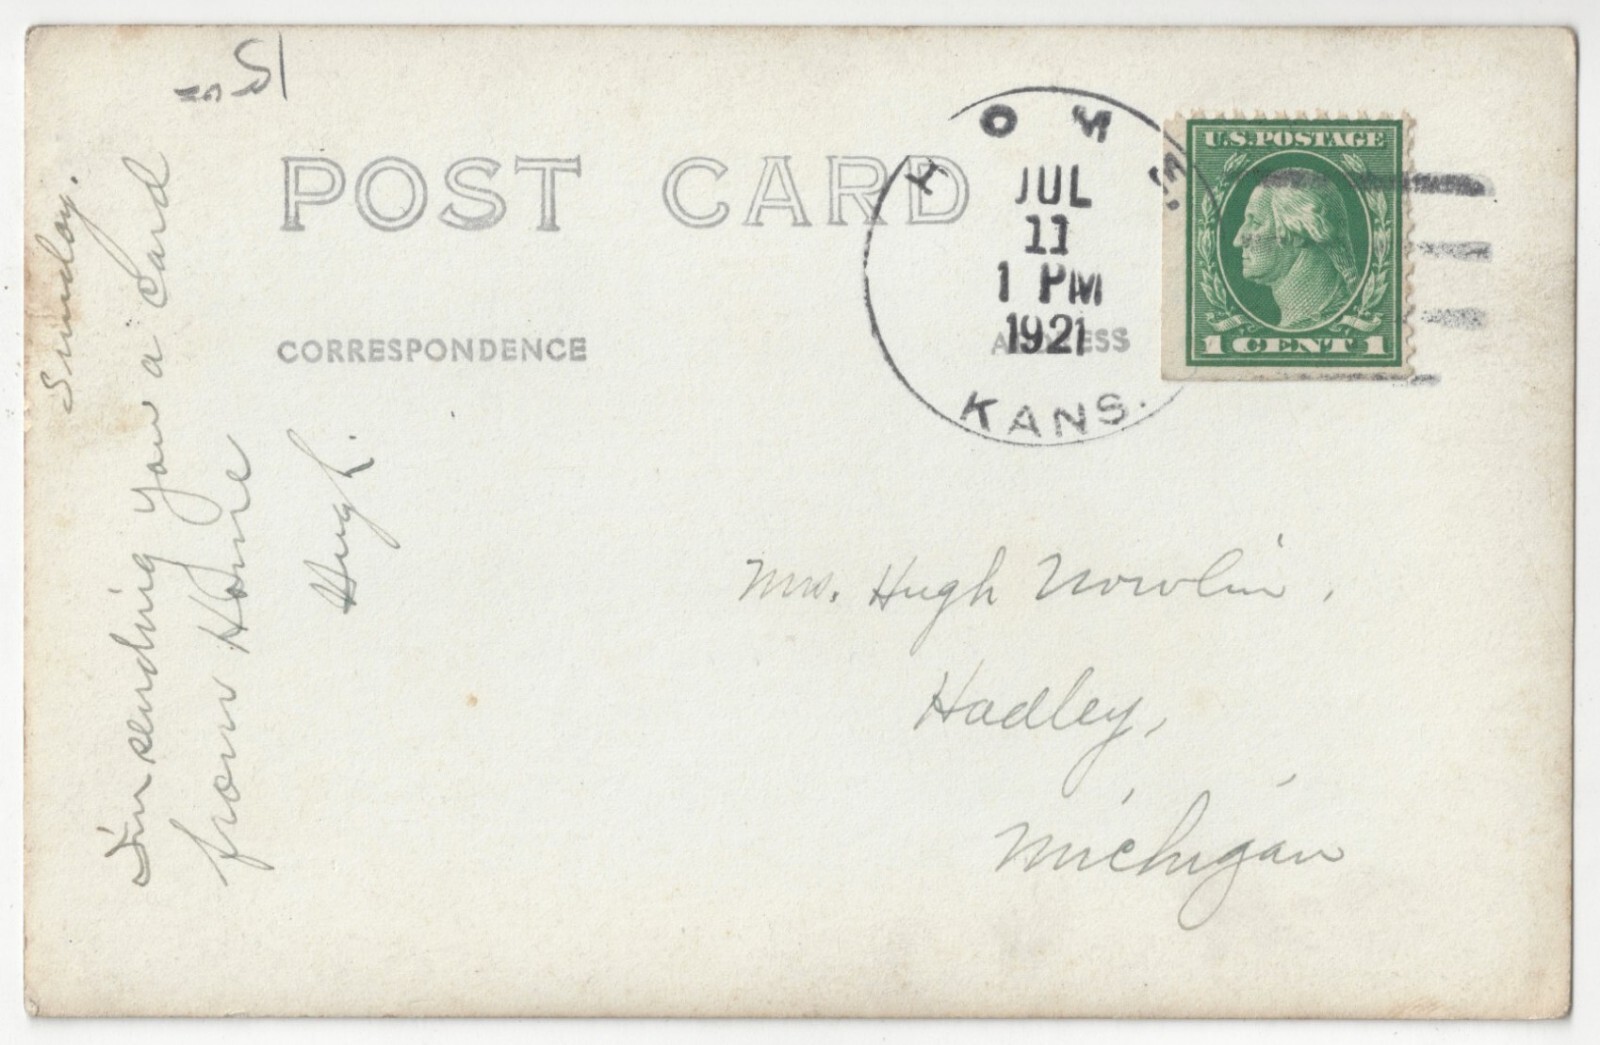 POST CARD
CORRESPONDENCE
HOME
JUL
11
1 PM
1921
KANS.
U.S. POSTAGE
1 CENT 1
Sunday.
I'm sending you a card
from Home
Hugh.
Mrs. Hugh Nowlin,
Hadley,
Michigan